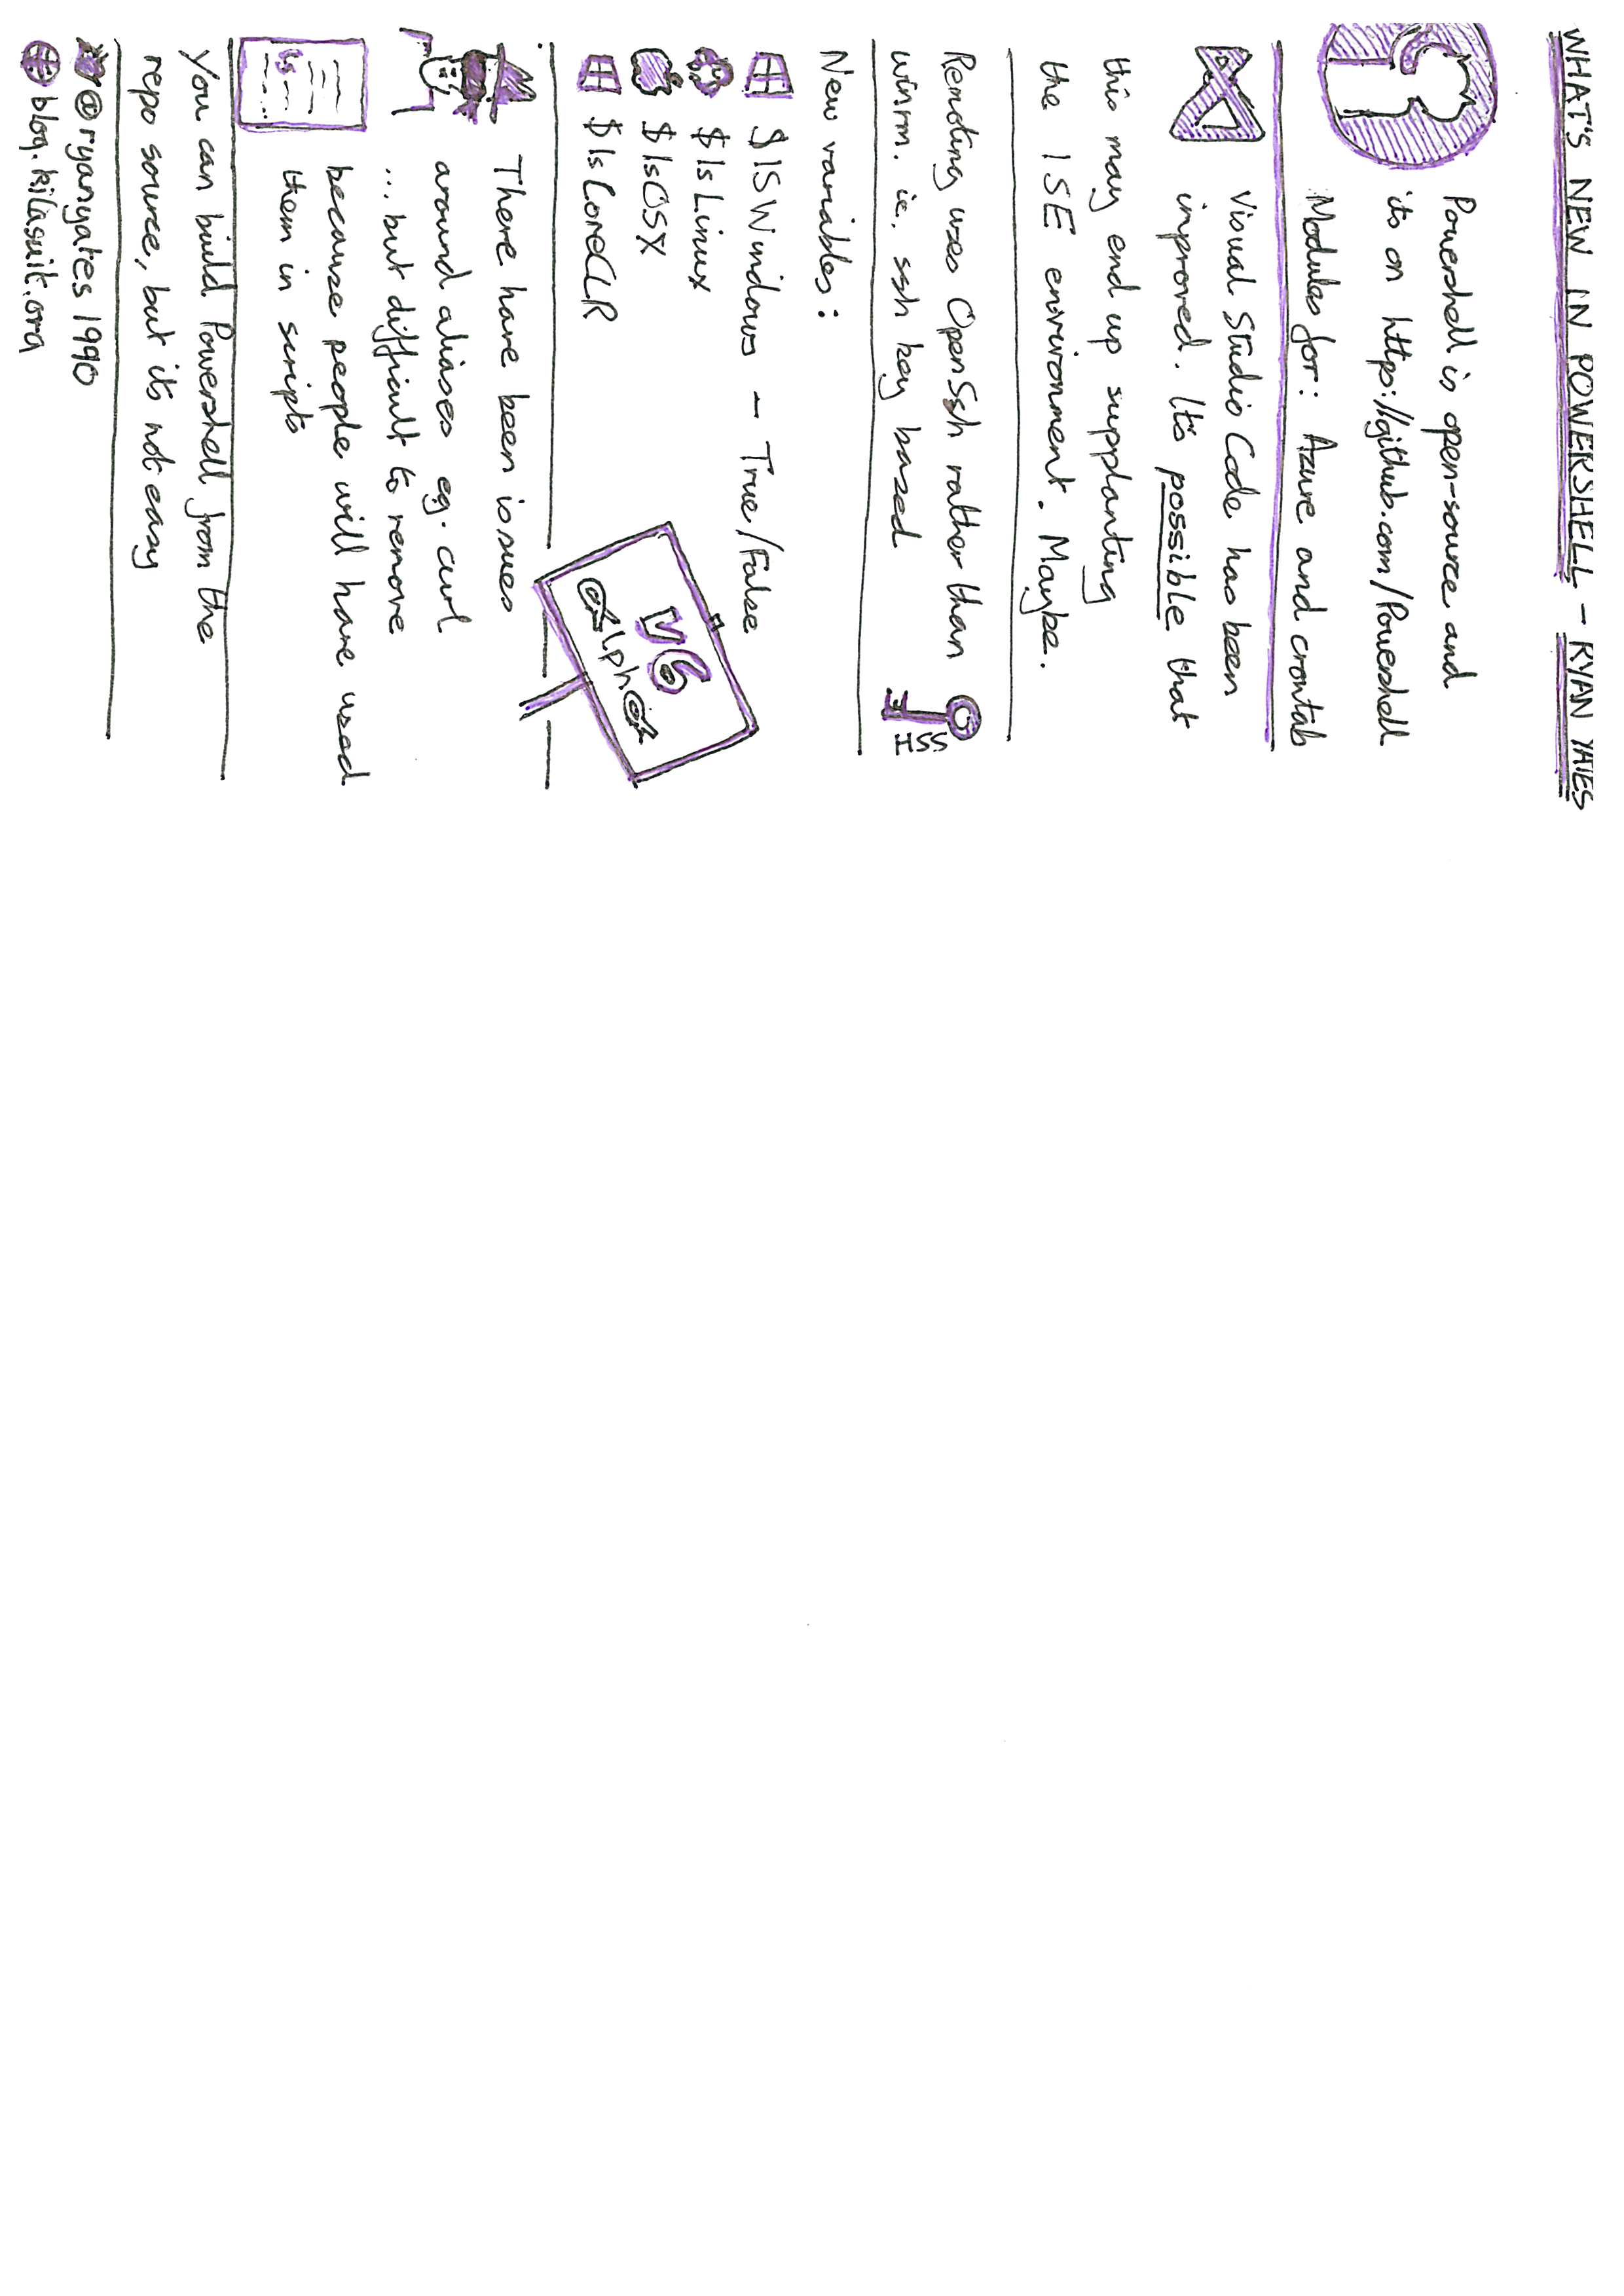 WHAT'S NEW IN POWERSHELL – RYAN YATES
Powershell is open-source and
its on https://github.com/Powershell
Modules for: Azure and crontab
Visual Studio Code has been
improved. It's possible that
this may end up supplanting
the ISE environment. Maybe.
Remoting uses OpenSsh rather than
winrm. ie. ssh key based
SSH
New variables:
$ISWindows – True/False
$IsLinux
$IsOSX
$IsCoreCLR
V6
alpha
There have been issues
around aliases eg. curl
... but difficult to remove
because people will have used
them in scripts
ls
You can build Powershell from the
repo source, but its not easy
@ryanyates1990
blog.kilasuit.org